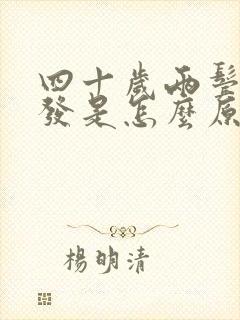 四十歲兩鬢
發是怎麼原
楊明清